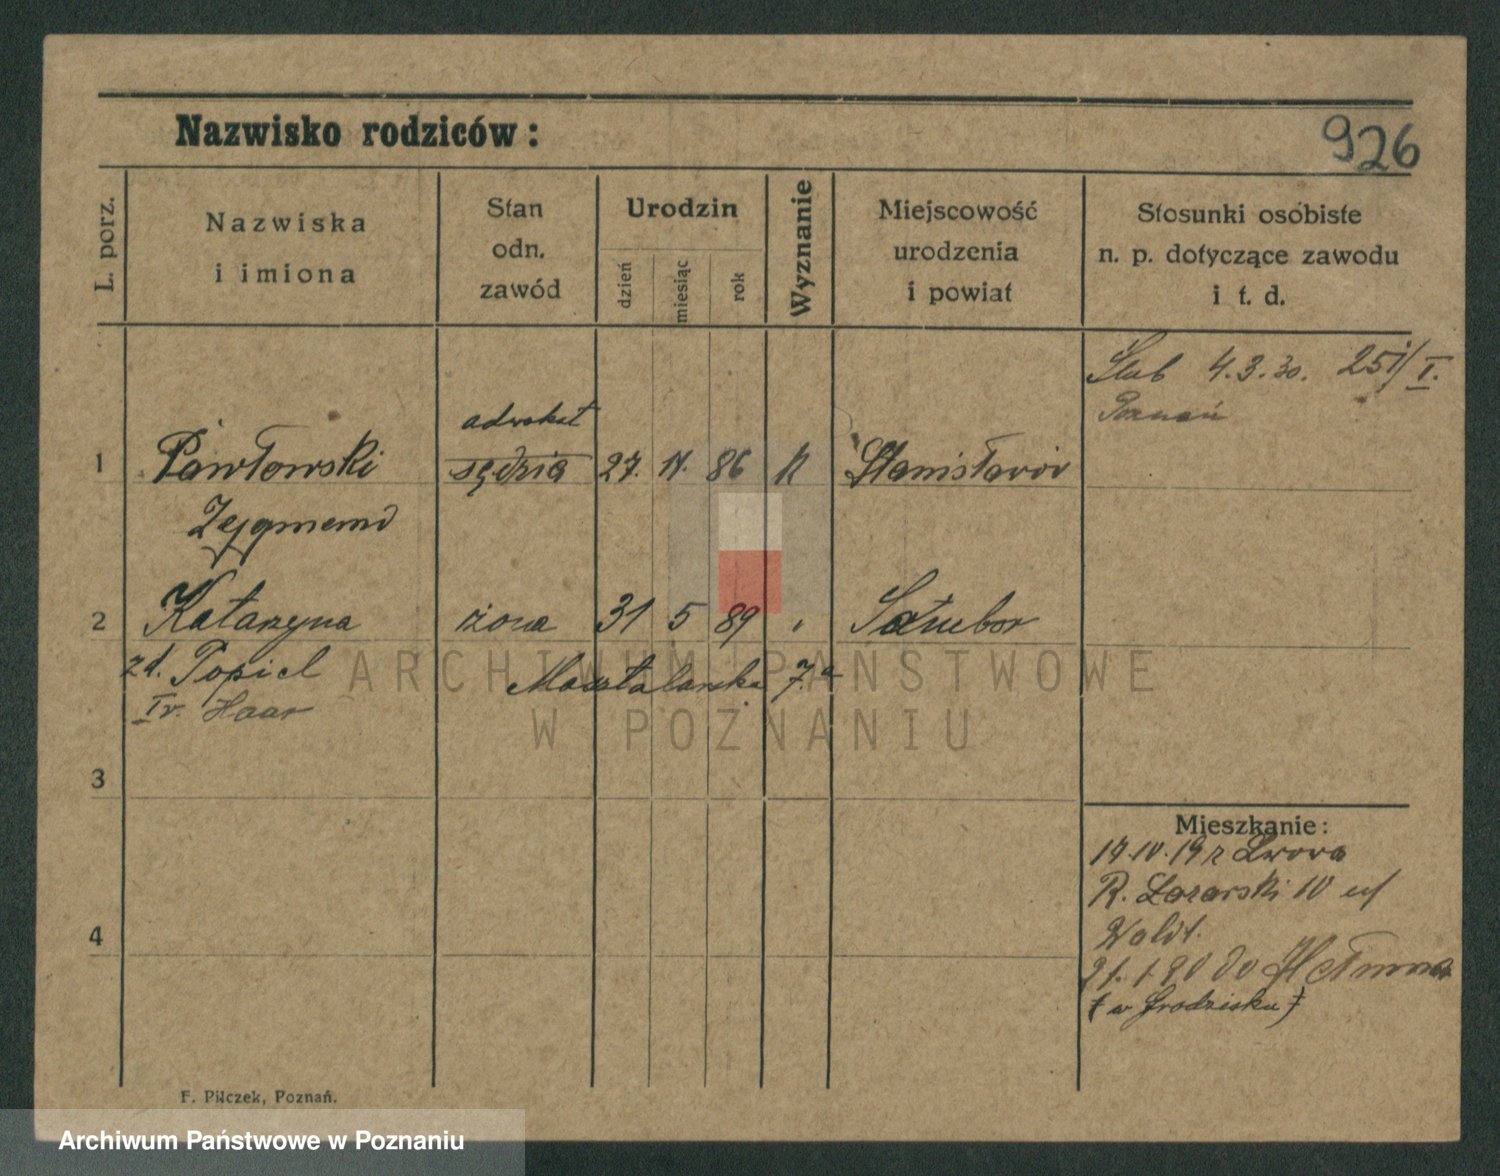 Nazwisko rodziców:
926
L. porz.
Nazwiska
i imiona
Stan
odn.
zawód
Urodzin
dzień
miesiąc
rok
Wyznanie
Miejscowość
urodzenia
i powiat
Stosunki osobiste
n. p. dotyczące zawodu
i t. d.
Ślub 4.3.30. 251/I.
Poznań
adwokat
1 Pawłowski sędzia 27. 11. 86 K Stanisławów
Zygmund
2 Katarzyna żona 31 5 89 " Sambor
zd. Popiel
Iv. Haar
Masztalarska 7a
3
4
Mieszkanie:
17.IV.19 z Lwowa
R. Łazarski 10 u/
Wald.
21. 1 90 do Hetmana
(w Grodzisku)
F. Pilczek, Poznań.
ARCHIWUM PAŃSTWOWE
W POZNANIU
Archiwum Państwowe w Poznaniu